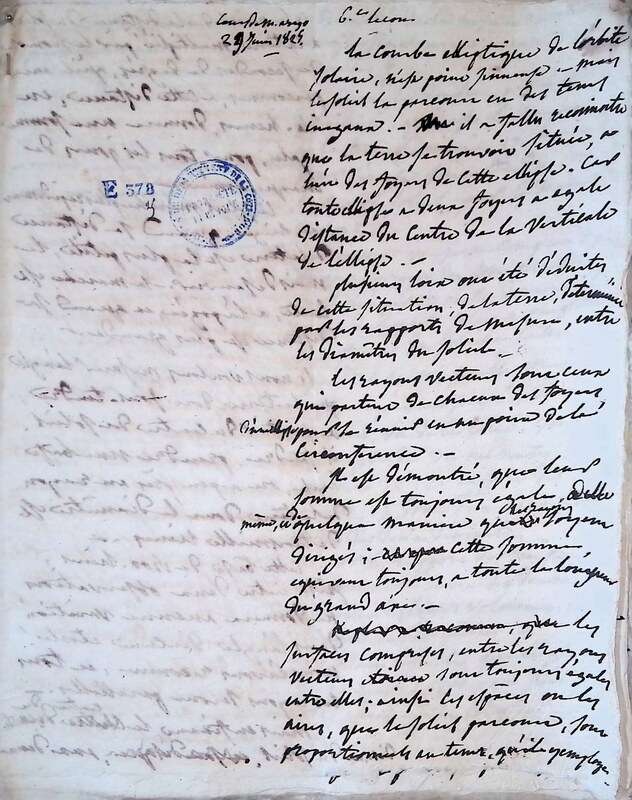 Cours de M. arago
29 Juin 1825
6.e lecon
la courbe elliptique de l'orbite
solaire, n'est point immense - mais
le soleil la parcourt en des tems
inegaux. - il a fallu reconnoitre
que la terre se trouvoit située, a
l'un des foyers de cette ellipse. Car
toute ellipse a deux foyers a egale
distance du Centre de la Verticale
de l'ellipse. -
E 378
plusieurs loix ont été déduites
de cette situation, de la terre, determinée
par les rapports de mesure, entre
les diamètres du soleil. -
les rayons vecteurs sont ceux
qui partent de chacun des foyers,
pour se réunir en un point de la
Circonference. -
Il est démontré, que leur
somme est toujours égale, a elle
même, de quelque maniere que ces rayons soyent
dirigés ; Cette somme
equivaut toujours, a toute la longueur
du grand axe. -
que les
surfaces comprises, entre les rayons
vecteurs sont toujours égales
entre elles ; ainsi les espaces ou les
aires, que le soleil parcourt, sont
proportionnels au tems, qu'il y employe